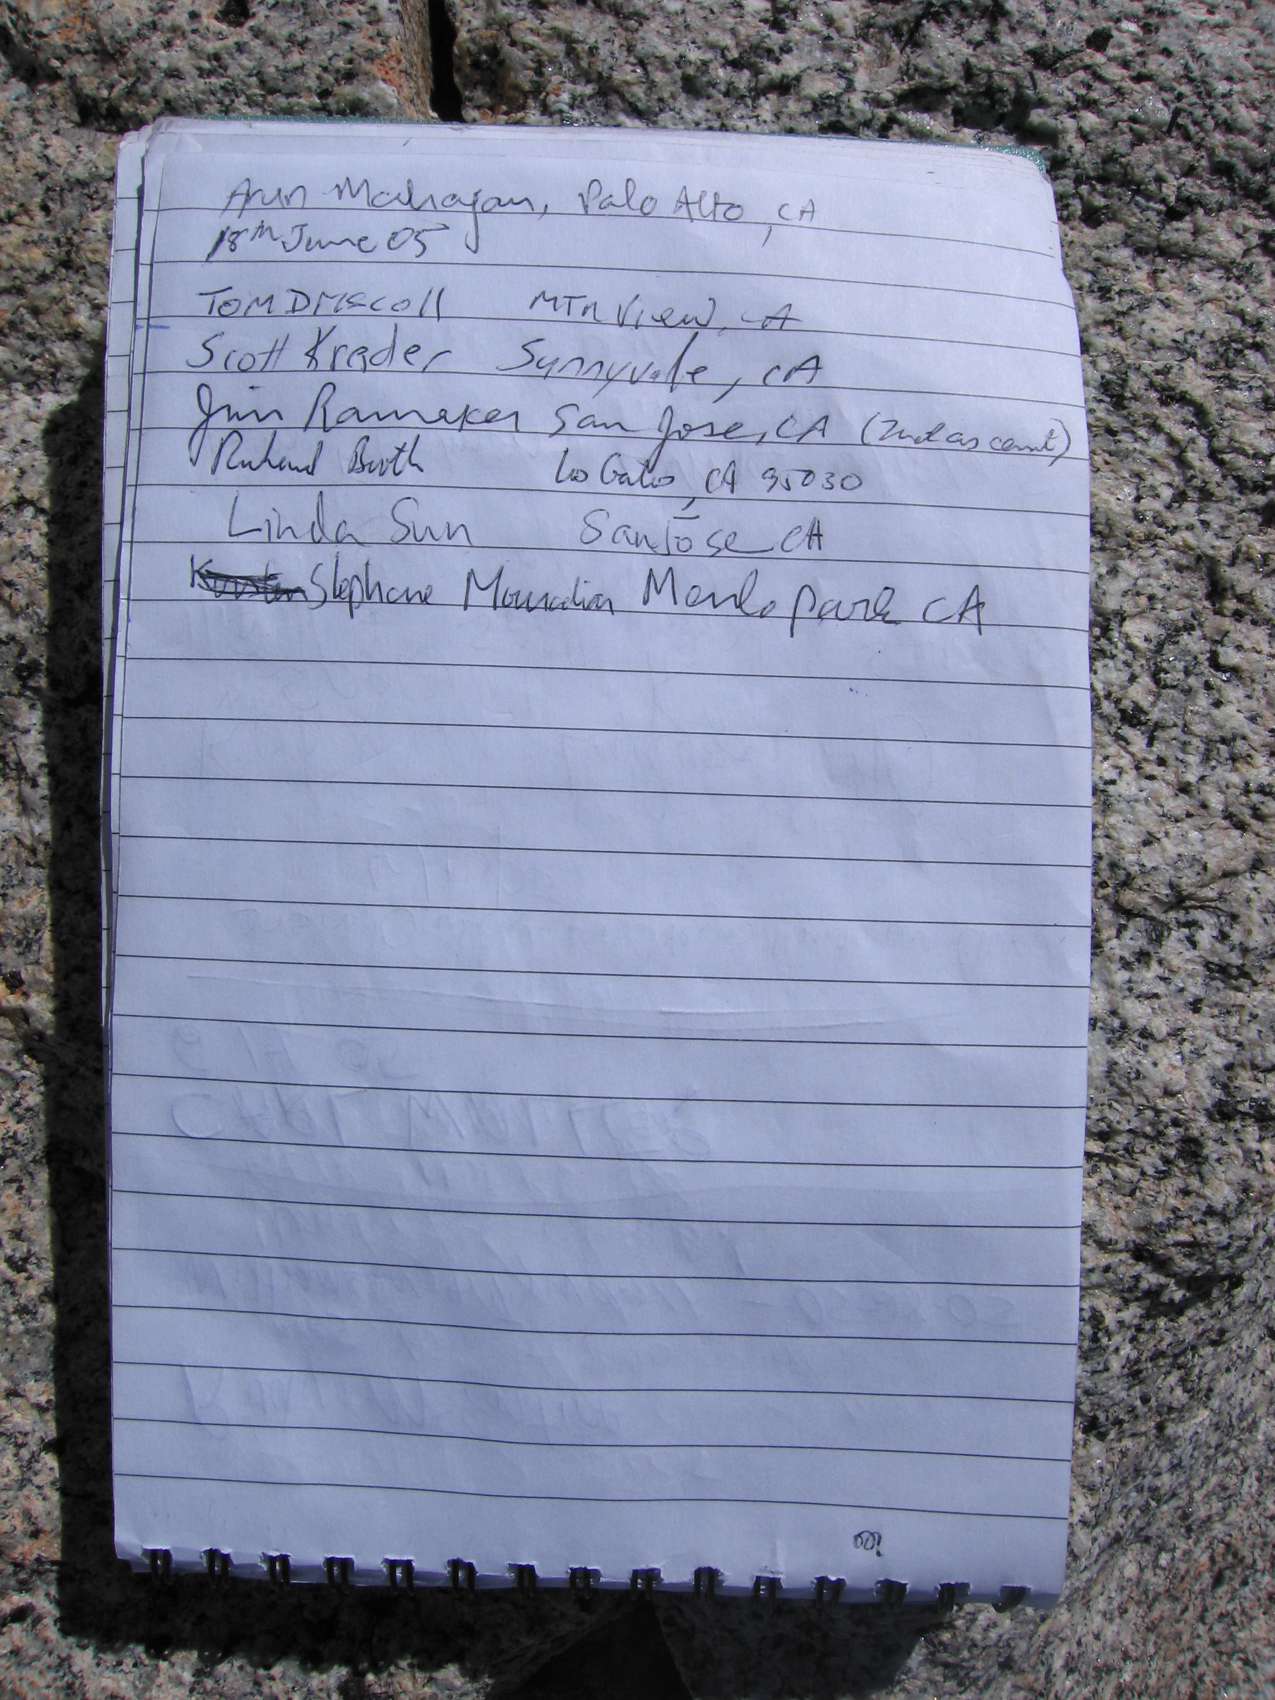 Arun Mahajan, Palo Alto, CA
18th June 05
Tom Driscoll Mtn View, CA
Scott Kreider Sunnyvale, CA
Jim Ramaker San Jose, CA (2nd ascent)
Richard Booth Los Gatos, CA 95030
Linda Sun San Jose CA
Stephane Mouradian Menlo Park CA